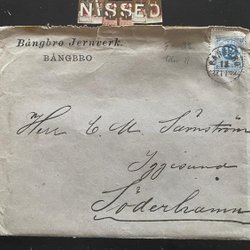 NISSED
Bångbro Jernverk.
BÅNGBRO
Herr C. U. Sämström
Iggesund
Söderhamn